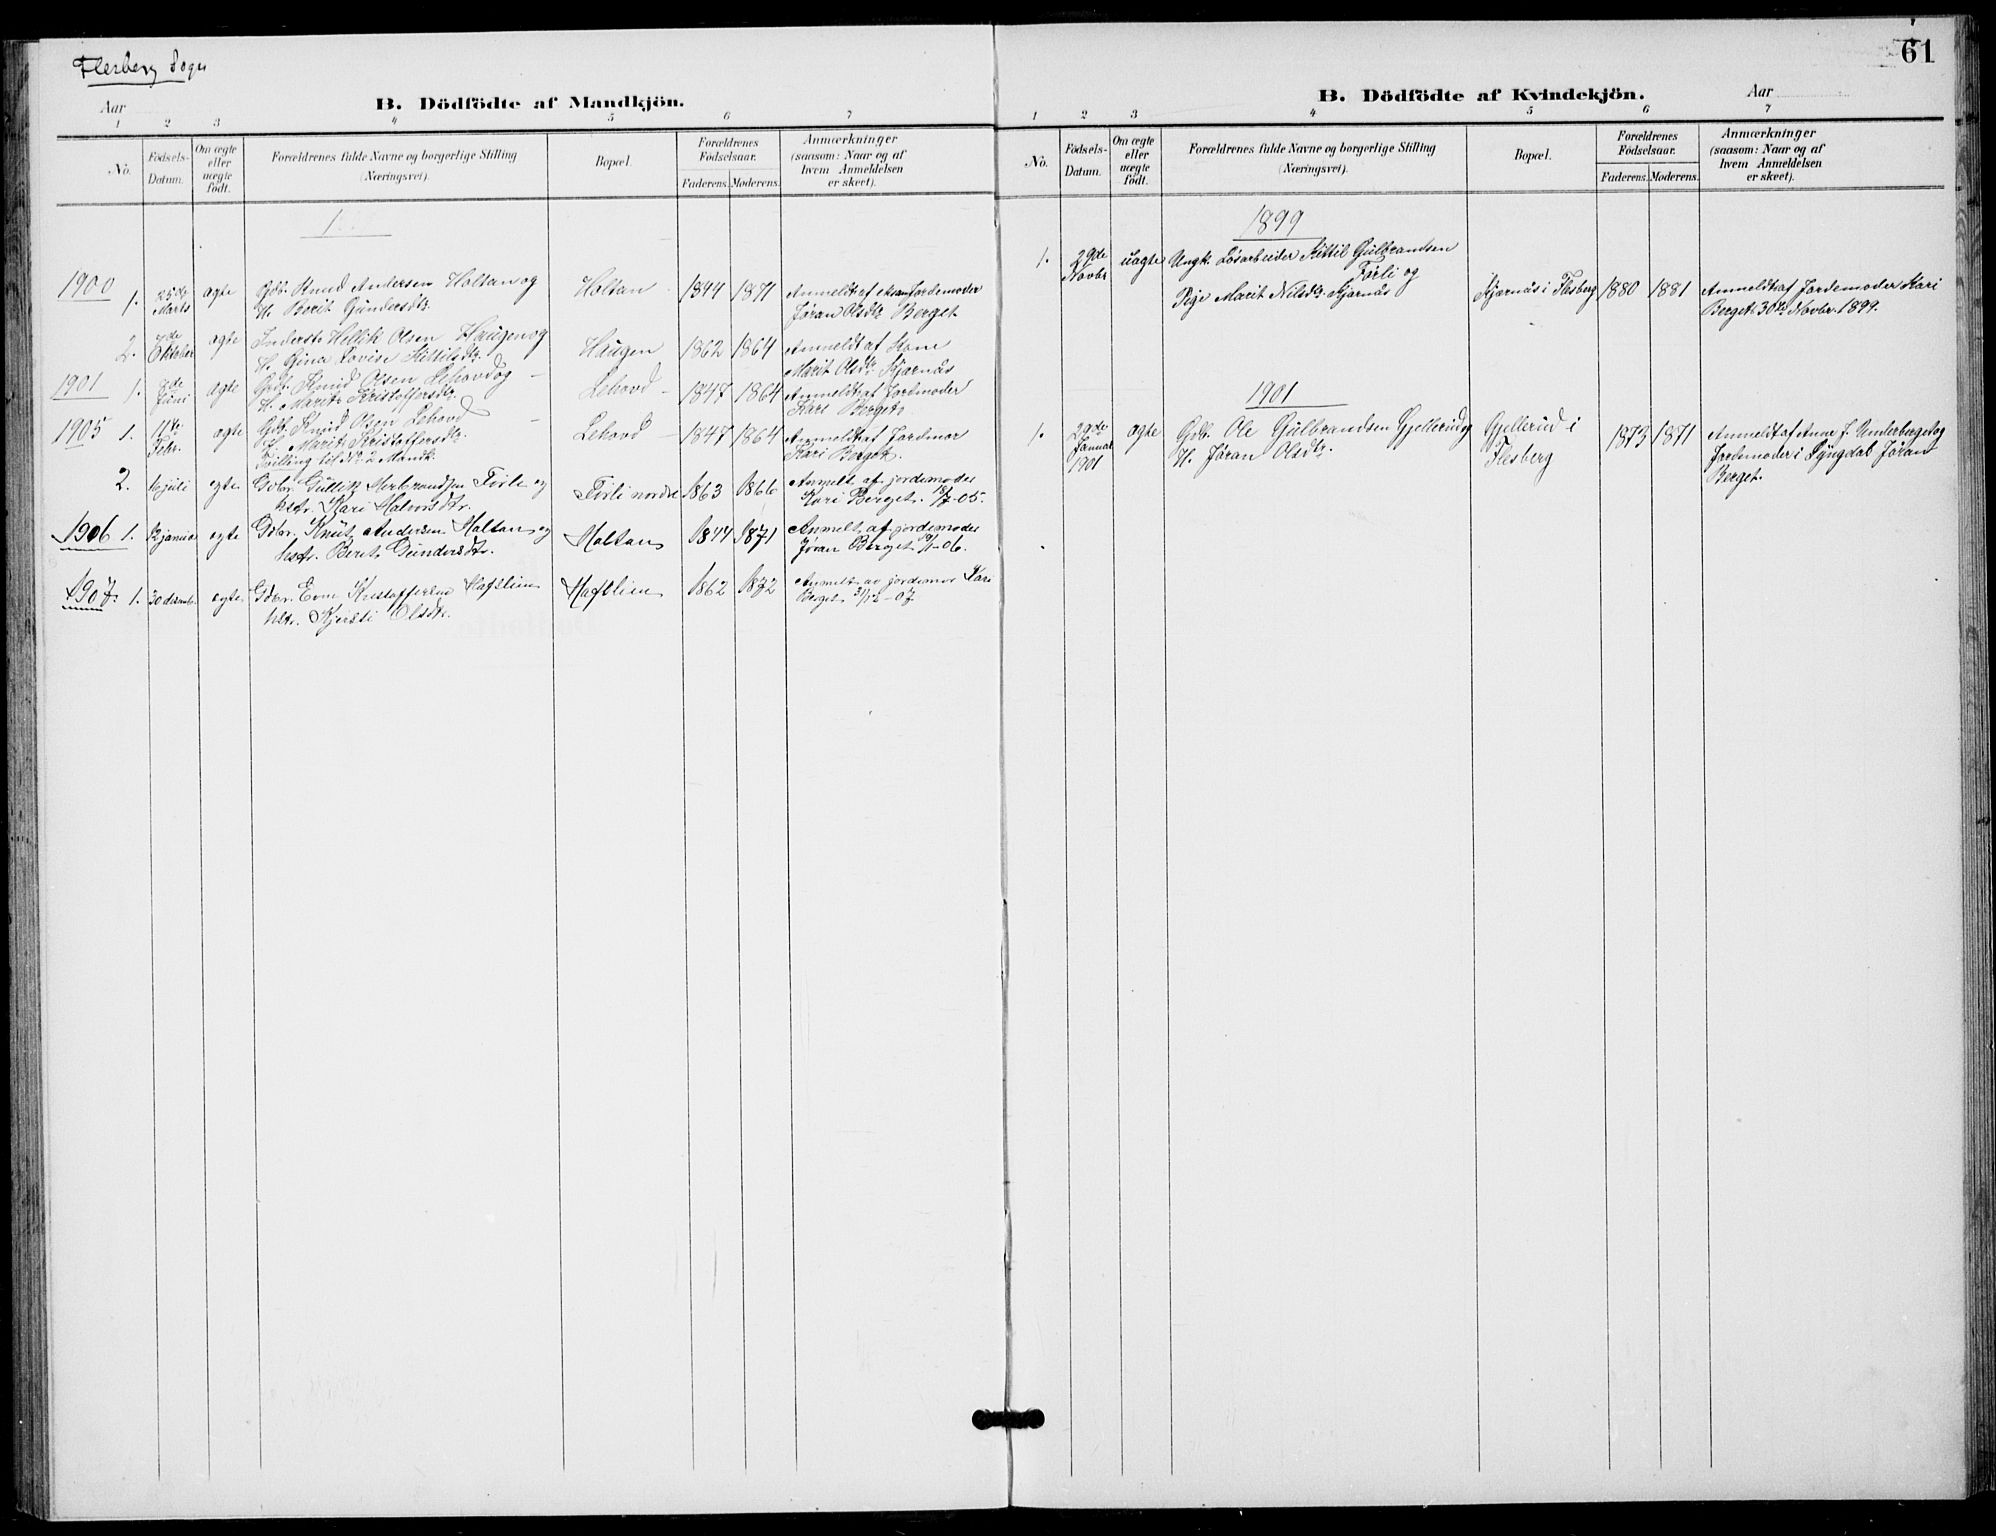 Flesberg Sogn
Aar
B. Dödfödte af Mandkjön.
1 2 3 4 5 6 7
No.
Födsels-Datum.
Om ægte eller uægte födt.
Forældrenes fulde Navne og borgerlige Stilling (Næringsvei).
Bopæl.
Forældrenes Födselsaar.
Faderens. Moderens.
Anmærkninger (saasom: Naar og af hvem Anmeldelsen er skeet).
1900
1. 25de Marts ægte Gdb. Knud Andersen Holtan og Holtan 1844 1871 Anmeldt af Jordemoder
H. Berit Gundersdtr. Jøran Olsdtr Berget
2. 7de Oktober ægte Inderst Hellik Olsen Haugen og Haugen 1862 1864 Anmeldt af Kone
H. Gina Lovise Kittilsdtr. Marit Olsdtr. Kjørnås
1901 1. 8de Juni ægte Gdb. Knud Olsen Lehovd og Lehovd 1847 1864 Anmeldt af Jordmoder
H. Marit Kristoffersdtr. Kari Berget
1905 1. 11te Febr. ægte Gdb. Knud Olsen Lehovd Lehovd 1847 1864 Anmeldt af Jordmor
H. Marit Kristoffersdtr. Kari Berget.
Tvilling til No. 2 Mandk.
2. juli egte Gdbr. Gullik Herbrandsen Førle og Førli nordre 1863 1866 Anmelt af jordemoder
hstr. Kari Halvorsdtr. Kari Berget 18/7-05.
1906 1. januar egte Gdbr. Knut Andersen Holtan og Holtan 1844 1871 Anmelt af jordemoder
hstr. Berit Gundersdtr. Jøran Berget /1-06.
1907. 1. 30 desemb. egte Gdbr. Even Kristoffersen Hafslien Hafslien 1862 1872 Anmelt av jordemor Kari
hstr. Kjersti Olsdtr. Berget 31/12-07
61
B. Dödfödte af Kvindekjön.
Aar
1 2 3 4 5 6 7
No.
Födsels-Datum.
Om ægte eller uægte födt.
Forældrenes fulde Navne og borgerlige Stilling (Næringsvei).
Bopæl.
Forældrenes Födselsaar.
Faderens. Moderens.
Anmærkninger (saasom: Naar og af hvem Anmeldelsen er skeet).
1899
1. 29de Novbr uægte Ungk. Løsarbeider Kittil Gulbrandsen
Førli og
Pige Marit Nilsdtr. Kjørnås Kjørnås i Flesberg 1880 1881 Anmeldt af Jordemoder Kari
Berget 30te Novbr. 1899.
1901
1. 29de Januar 1901 ægte Gdb. Ole Gulbrandsen Gjellerud og Gjellerud i 1873 1871 Anmeldt af Anne J. Underberget og
H. Jøran Olsdtr. Flesberg Jordemoder i Lyngdal Jøran
Berget.